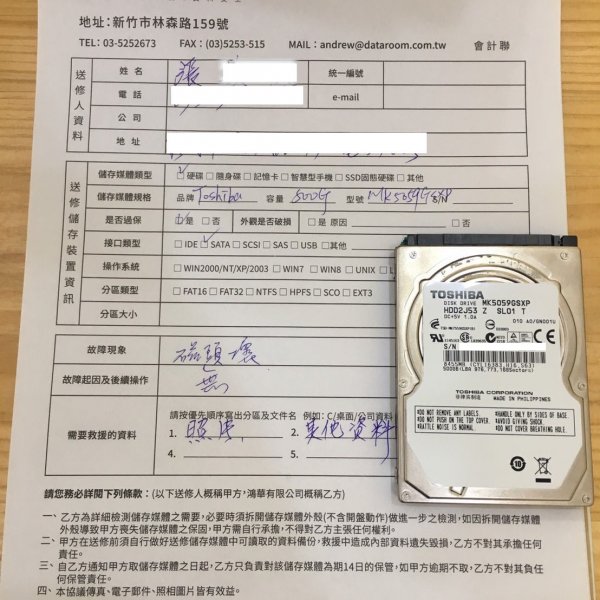 地址:新竹市林森路159號
TEL: 03-5252673 FAX: (03)5253-515 MAIL: andrew@dataroom.com.tw 會計聯
送修人資料
姓名 張 統一編號
電話 e-mail
公司
地址
送修儲存裝置資訊
儲存媒體類型 ☑硬碟 □隨身碟 □記憶卡 □智慧型手機 □SSD固態硬碟 □其他
儲存媒體規格 品牌 Toshiba 容量 500G 型號 MK5059GSXP S/N
是否過保 ☑是 □否 外觀是否破損 □是 原因 □否
接口類型 □IDE ☑SATA □SCSI □SAS □USB □其他
操作系統 □WIN2000/NT/XP/2003 □WIN7 □WIN8 □UNIX □L
分區類型 □FAT16 □FAT32 □NTFS □HPFS □SCO □EXT3
分區大小
故障現象 磁頭壞
故障起因及後續操作 無
需要救援的資料
請按優先順序寫出分區及文件名 例如: C/桌面/公司資料
1. 照片 2. 其他資料
4. 5.
請您務必詳閱下列條款: (以下送修人概稱甲方,鴻華有限公司概稱乙方)
一、乙方為詳細檢測儲存媒體之需要,必要時須拆開儲存媒體外殼(不含開盤動作)做進一步之檢測,如因拆開儲存媒體
外殼導致甲方喪失儲存媒體之保固,甲方需自行承擔,不得對乙方主張任何權利。
二、甲方在送修前須自行做好送修儲存媒體中可讀取的資料備份,救援中造成內部資料遺失毀損,乙方不對其承擔任何
責任。
三、自乙方通知甲方取儲存媒體之日起,乙方只負責對該儲存媒體為期14日的保管,如甲方逾期不取,乙方不對其負任
何保管責任。
四、本協議傳真、電子郵件、照相圖片皆有效益。
TOSHIBA
DISK DRIVE MK5059GSXP
HDD2J53 Z SL01 T
DC+5V 1.0A
010 A0/GN001U
S/N
500GB(LBA 976,773,168Sectors)
TOSHIBA CORPORATION
MADE IN PHILIPPINES
●DO NOT REMOVE ANY LABELS.
●DO NOT PUSH ON THE TOP COVER.
●RATTLE NOISE IS NORMAL.
●HANDLE ONLY BY SIDES OF BASE.
●AVOID GIVING SHOCK.
●DO NOT COVER BREATHING HOLE.